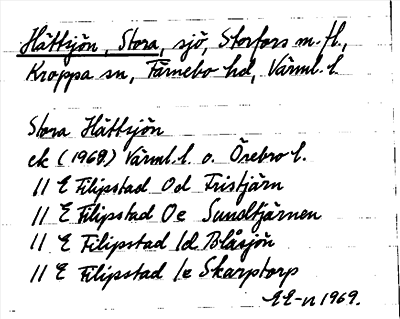 Hättsjön, Stora, sjö, Storfors m. fl.,
Kroppa sn, Färnebo hd, Värml. l.
Stora Hättsjön
ek (1969) Värml. l. o. Örebro l.
11 E Filipstad 0d Fristjärn
11 E Filipstad 0e Sundtjärnen
11 E Filipstad 1d Blåsjön
11 E Filipstad 1e Skarptorp
1969.